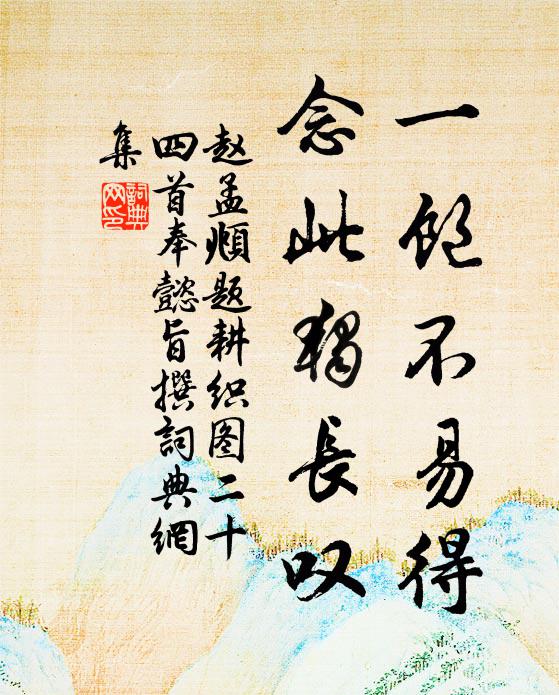 一饱不易得
念此独长叹
赵孟頫题耕织图二十
四首奉懿旨撰詞典網
集
詞典網印